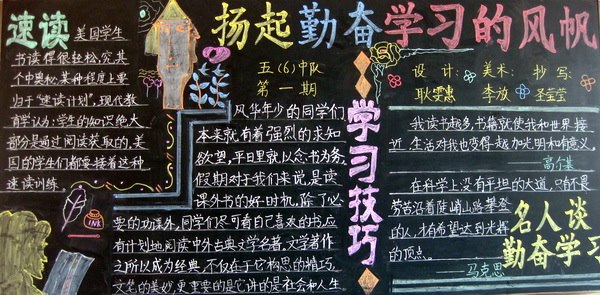 扬起勤奋学习的风帆
五(6)中队
第一期
设计:
耿雯惠
美术:
李放
抄写:
圣莹莹
速读
美国学生
书读得很轻松,究其
个中奥秘,某种程度上要
归于“速读计划”,现代教
育学认为:学生的知识绝大
部分是通过阅读获取的,美
国的学生们都要接着这种
速读训练。
风华年少的同学们
本来就有着强烈的求知
欲望,平日里就以念书为务,
假期对于我们来说,是读
课外书的好时机,除了必
要的功课外,同学们尽可看自己喜欢的书,应
有计划地阅读中外古典文学名著,文学著作
之所以成为经典,不仅在于它构思的精巧,
文笔的美妙,更重要的是它讲的是社会和人生
学习技巧
我读书越多,书籍就使我和世界接
近,生活对我也变得越加光明和有意义。
——高尔基
在科学上没有平坦的大道,只有不畏
劳苦沿着陡峭山路攀登
的人,才有希望达到光辉
的顶点。
——马克思
名人谈
勤奋学习
INK